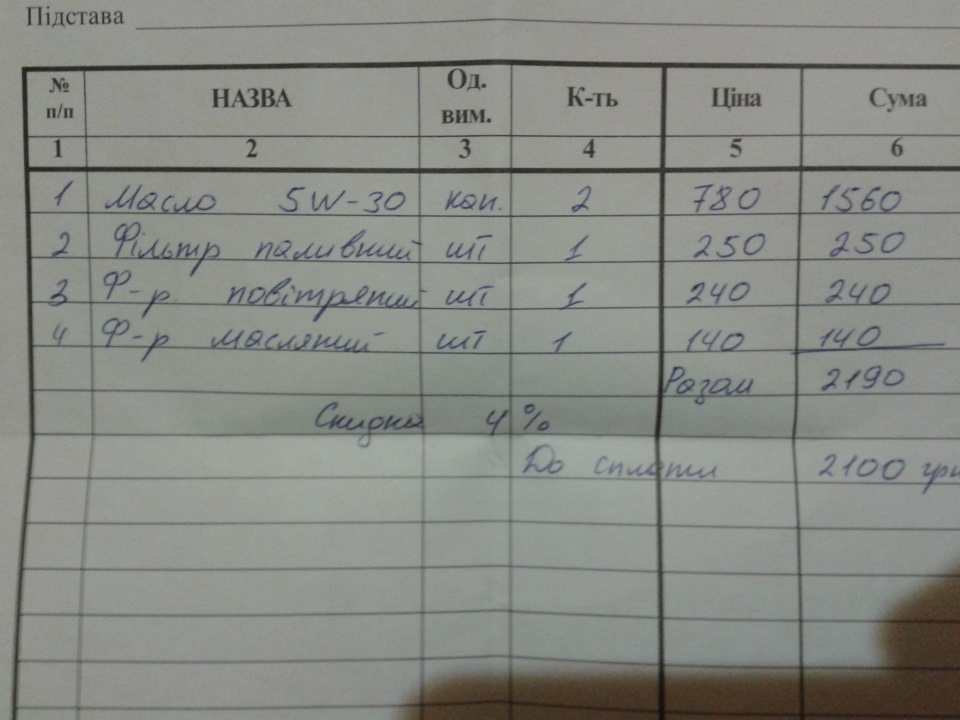 Підстава
№ п/п НАЗВА Од. вим. К-ть Ціна Сума
1 2 3 4 5 6
1 Масло 5W-30 кан. 2 780 1560
2 Фільтр паливний шт 1 250 250
3 Ф-р повітряний шт 1 240 240
4 Ф-р масляний шт 1 140 140
Разом 2190
Скидка 4%
До сплати 2100 грн